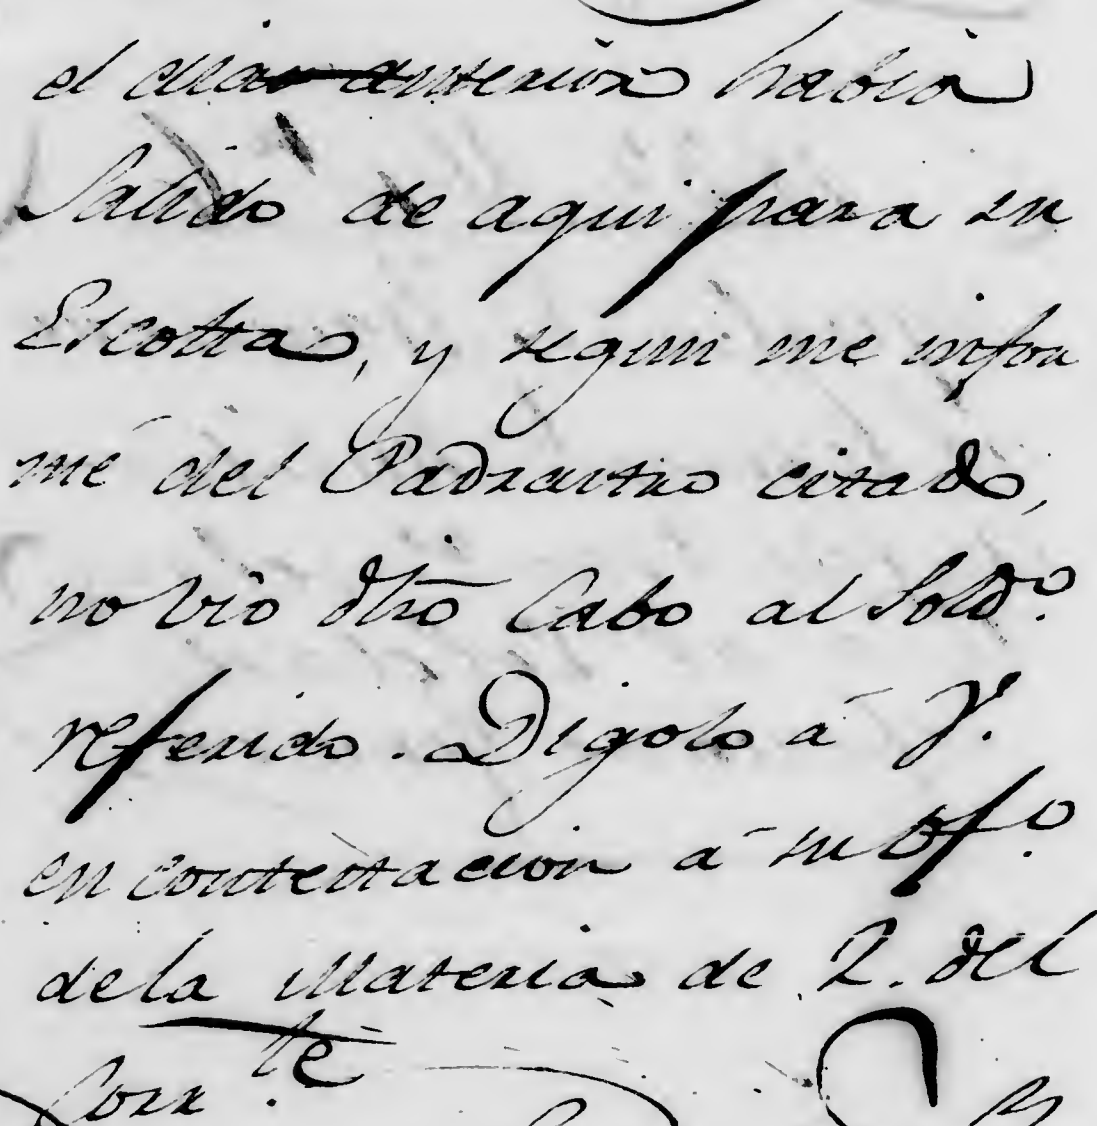 el dia anterior habia
Salido de aqui para su
Escolta, y segun me infor
mé del Padrastro citado,
no vio dho Cabo al Sold.º
referido. Digolo á V.
en contestacion á su of.º
dela Materia de 2. del
Corr.te